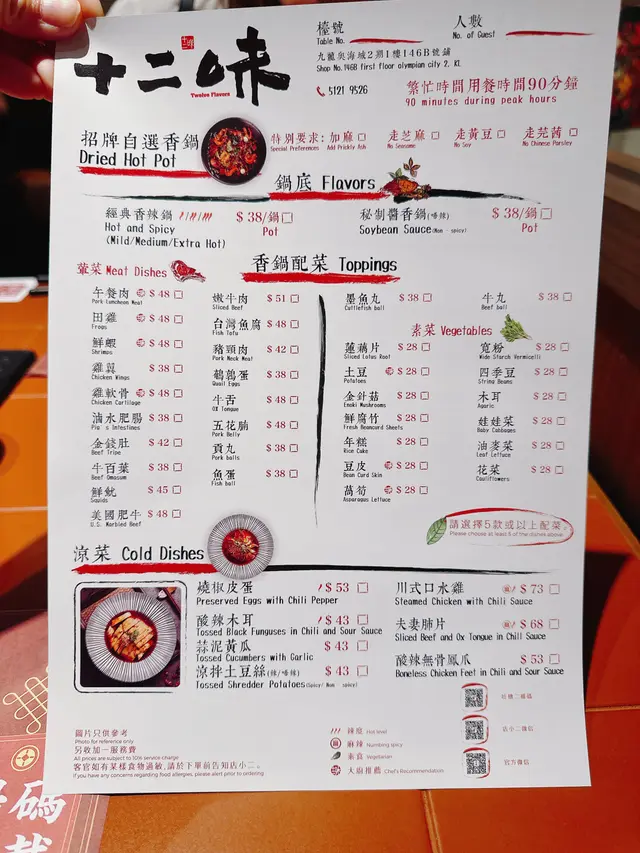 十二味
Twelve Flavors
檯號
Table No.
人數
No. of Guest
九龍奧海城2期1樓146B號鋪
Shop No.146B first floor olympian city 2, KL
5121 9526
繁忙時間用餐時間90分鐘
90 minutes during peak hours
招牌自選香鍋
Dried Hot Pot
特別要求: 加麻 走芝麻 走黃豆 走芫茜
Special Preferences Add Prickly Ash No Seasame No Soy No Chinese Parsley
鍋底 Flavors
經典香辣鍋 $ 38/鍋
Hot and Spicy Pot
(Mild/Medium/Extra Hot)
秘制醬香鍋(唔辣) $ 38/鍋
Soybean Sauce(Non - spicy) Pot
香鍋配菜 Toppings
葷菜 Meat Dishes
午餐肉 $ 48
Pork luncheon Meat
田雞 $ 48
Frogs
鮮蝦 $ 48
Shrimps
雞翼 $ 38
Chicken Wings
雞軟骨 $ 48
Chicken Cartilage
滷水肥腸 $ 38
Pig's Intestines
金錢肚 $ 42
Beef Tripe
牛百葉 $ 38
Beef Omasum
鮮魷 $ 45
Squids
美國肥牛 $ 48
U.S. Marbled Beef
嫩牛肉 $ 51
Sliced Beef
台灣魚腐 $ 48
Fish Tofu
豬頸肉 $ 42
Pork Neck Meat
鵪鶉蛋 $ 38
Quail Eggs
牛舌 $ 48
OX Tongue
五花腩 $ 48
Pork Belly
貢丸 $ 38
Pork balls
魚蛋 $ 38
Fish ball
墨魚丸 $ 38
Cuttlefish ball
牛丸 $ 38
Beef ball
素菜 Vegetables
蓮藕片 $ 28
Sliced Lotus Root
土豆 $ 28
Potatoes
金針菇 $ 28
Enoki Mushrooms
鮮腐竹 $ 28
Fresh Beancurd Sheets
年糕 $ 28
Rice Cake
豆皮 $ 28
Bean Curd Skin
萵筍 $ 28
Asparagus Lettuce
寬粉 $ 28
Wide Starch Vermicelli
四季豆 $ 28
String Beans
木耳 $ 28
Agaric
娃娃菜 $ 28
Baby Cabbages
油麥菜 $ 28
Leaf Lettuce
花菜 $ 28
Cauliflowers
請選擇5款或以上配菜。
Please choose at least 5 of the dishes above.
涼菜 Cold Dishes
燒椒皮蛋 $ 53
Preserved Eggs with Chili Pepper
酸辣木耳 $ 43
Tossed Black Funguses in Chili and Sour Sauce
蒜泥黃瓜 $ 43
Tossed Cucumbers with Garlic
涼拌土豆絲(辣/唔辣) $ 43
Tossed Shredder Potatoes(Spicy/ Non spicy)
川式口水雞 $ 73
Steamed Chicken with Chili Sauce
夫妻肺片 $ 68
Sliced Beef and Ox Tongue in Chili Sauce
酸辣無骨鳳爪 $ 53
Boneless Chicken Feet in Chili and Sour Sauce
圖片只供參考
Photo for reference only
另收加一服務費
All prices are subject to 10% service charge
客官如有某樣食物過敏,請於下單前告知店小二。
If you have any concerns regarding food allergies, please alert prior to ordering
辣度 Hot level
麻辣 Numbing spicy
素食 Vegetarian
大廚推薦 Chef's Recommendation
店小二微信
官方微信
碼